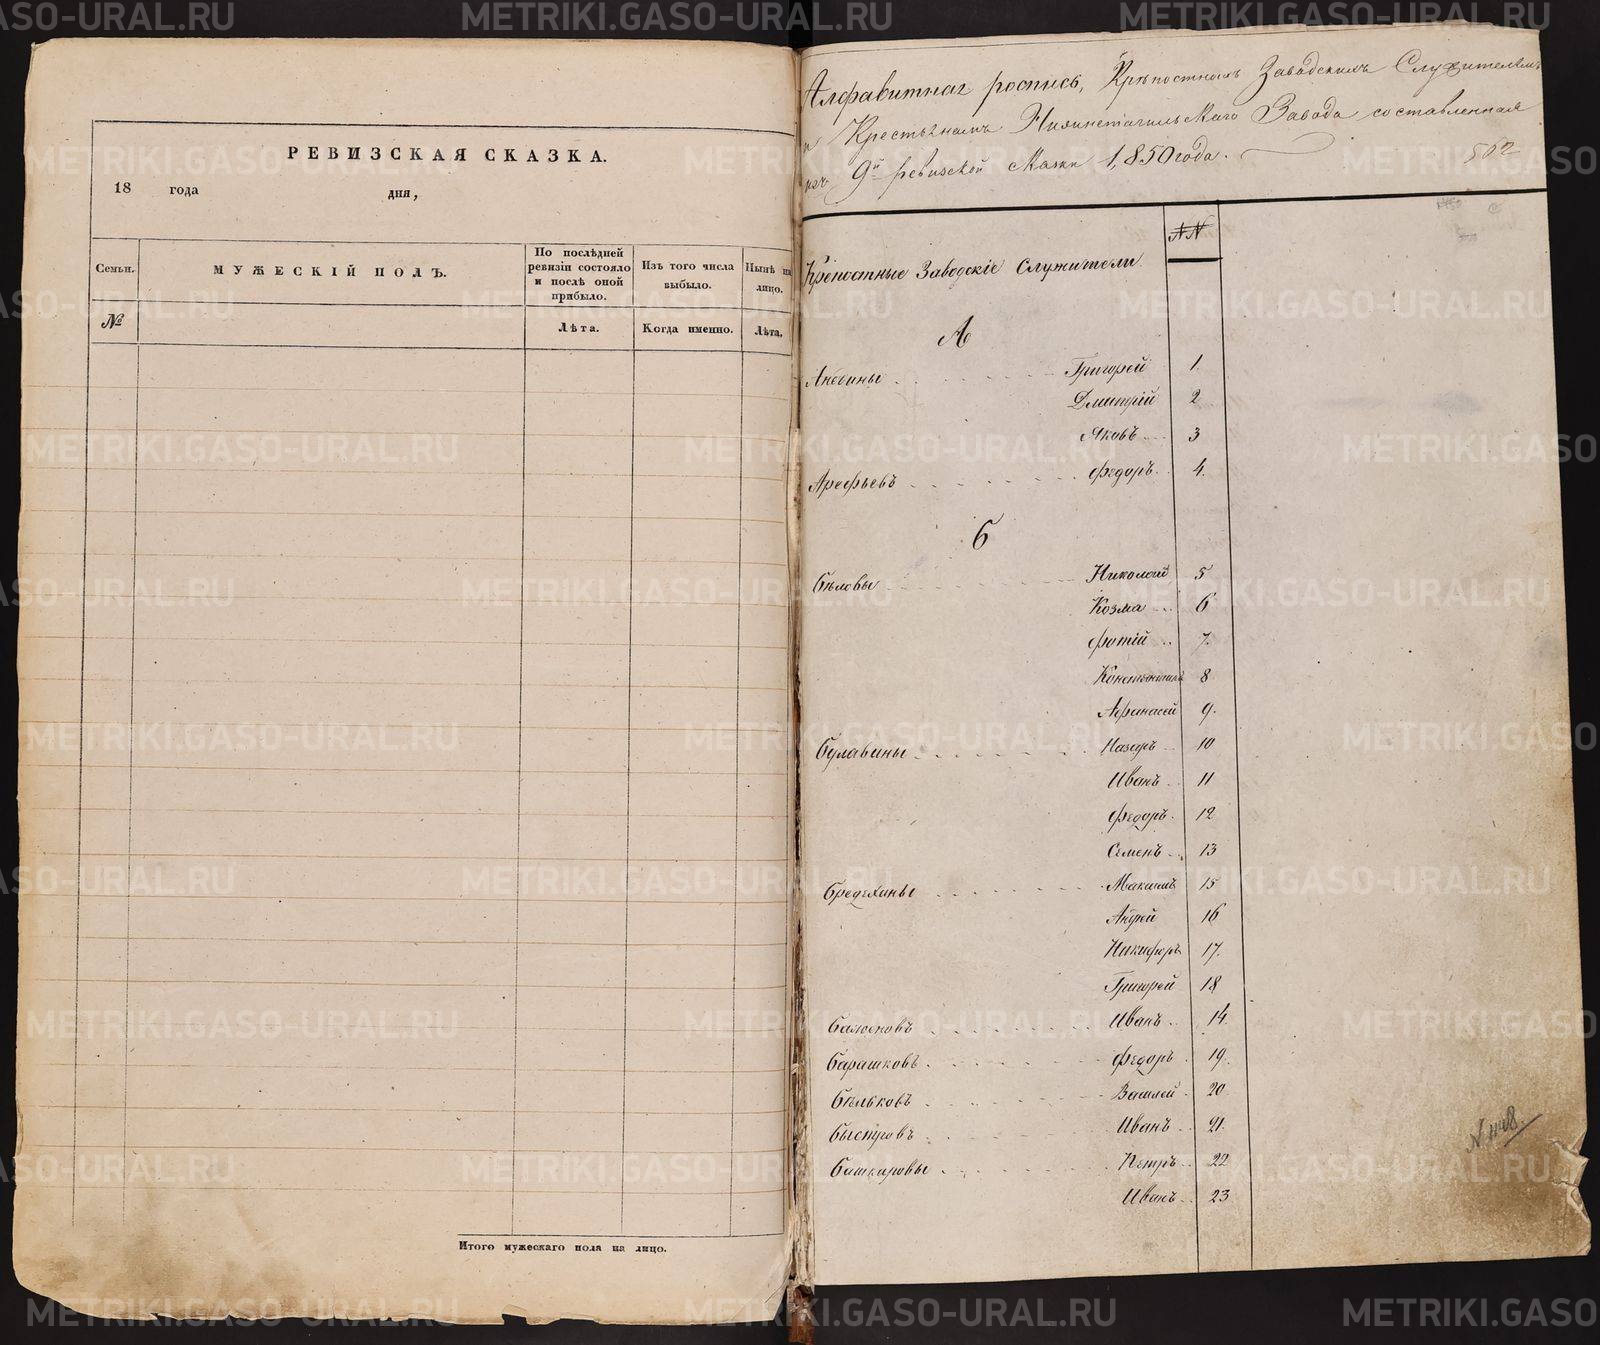 РЕВИЗСКАЯ СКАЗКА.
18 года дня,
Семьи. МУЖЕСКІЙ ПОЛЪ. По послѣдней ревизіи состояло и послѣ оной прибыло. Изъ того числа выбыло. Нынѣ на лицо.
№ Лѣта. Когда именно. Лѣта.
Итого мужескаго пола на лицо.
Алфавитная роспись, Крѣпостнымъ Заводскимъ Служителямъ
и Крестьянамъ Нижнетагильскаго Завода составленная
изъ 9й ревизской 1,850 года.
502
№№
Крѣпостные Заводскіе Служители
А
Григорей 1.
Дмитрій 2
Яковъ 3
Арефьевъ Федоръ 4.
Б
Бѣловы Николай 5
Козма 6
Фотій 7.
Константинъ 8
Афанасей 9.
Булавины Назаръ 10
Иванъ 11
Федоръ 12
Семенъ 13
Бредехины Максимъ 15
Андрей 16
Никифоръ 17.
Григорей 18
Иванъ 14.
Барашковъ Федоръ 19.
Бѣльковъ Василей 20
Быстровъ Иванъ 21.
Башкировы Петръ 22
Иванъ 23
METRIKI.GASO-URAL.RU